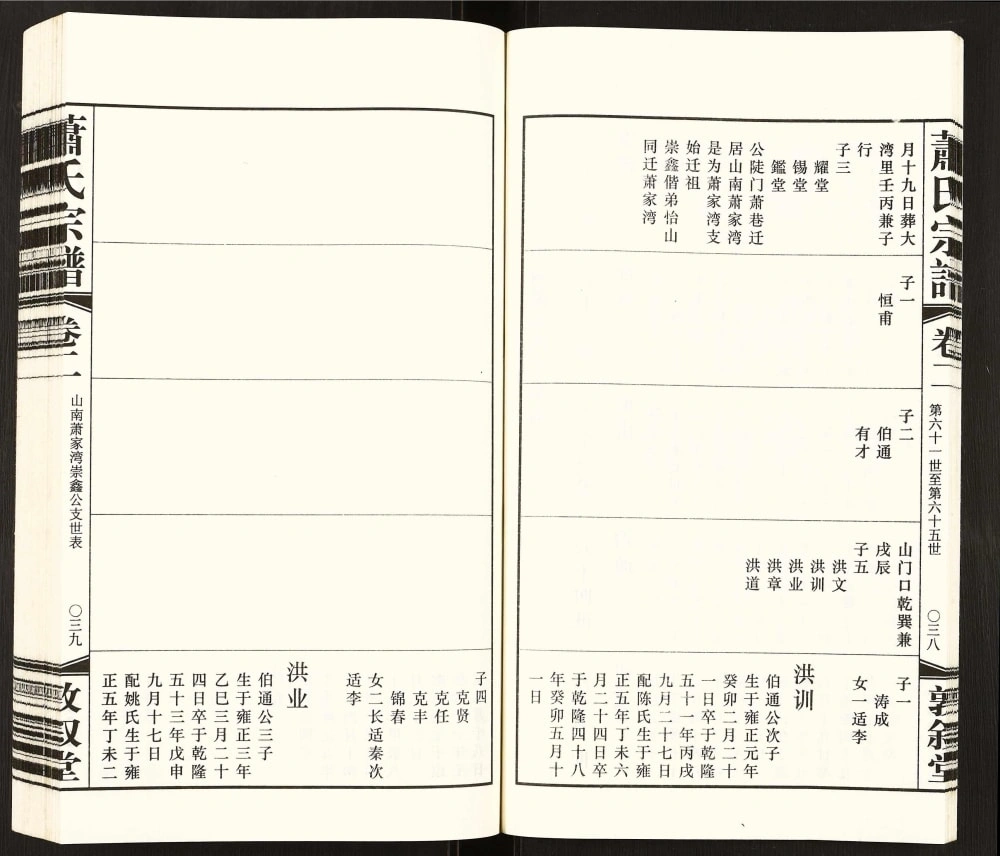 蕭氏宗譜
卷二
第六十一世至第六十五世
〇三八
敦叙堂
月十九日葬大
湾里壬丙兼子
行
子三
耀堂
锡堂
鑑堂
公陡门萧巷迁
居山南萧家湾
是为萧家湾支
始迁祖
崇鑫偕弟怡山
同迁萧家湾
子一
恒甫
子二
伯通
有才
山门口乾巽兼
戌辰
子五
洪文
洪训
洪业
洪章
洪道
子一
涛成
女一适李
洪训
伯通公次子
生于雍正元年
癸卯二月二十
一日卒于乾隆
五十一年丙戌
九月二十七日
配陈氏生于雍
正五年丁未六
月二十四日卒
于乾隆四十八
年癸卯五月十
一日
子四
克贤
克任
克丰
锦春
女二长适秦次
适李
洪业
伯通公三子
生于雍正三年
乙巳三月二十
四日卒于乾隆
五十三年戊申
九月十七日
配姚氏生于雍
正五年丁未二
蕭氏宗譜
卷二
山南萧家湾崇鑫公支世表
〇三九
敦叙堂